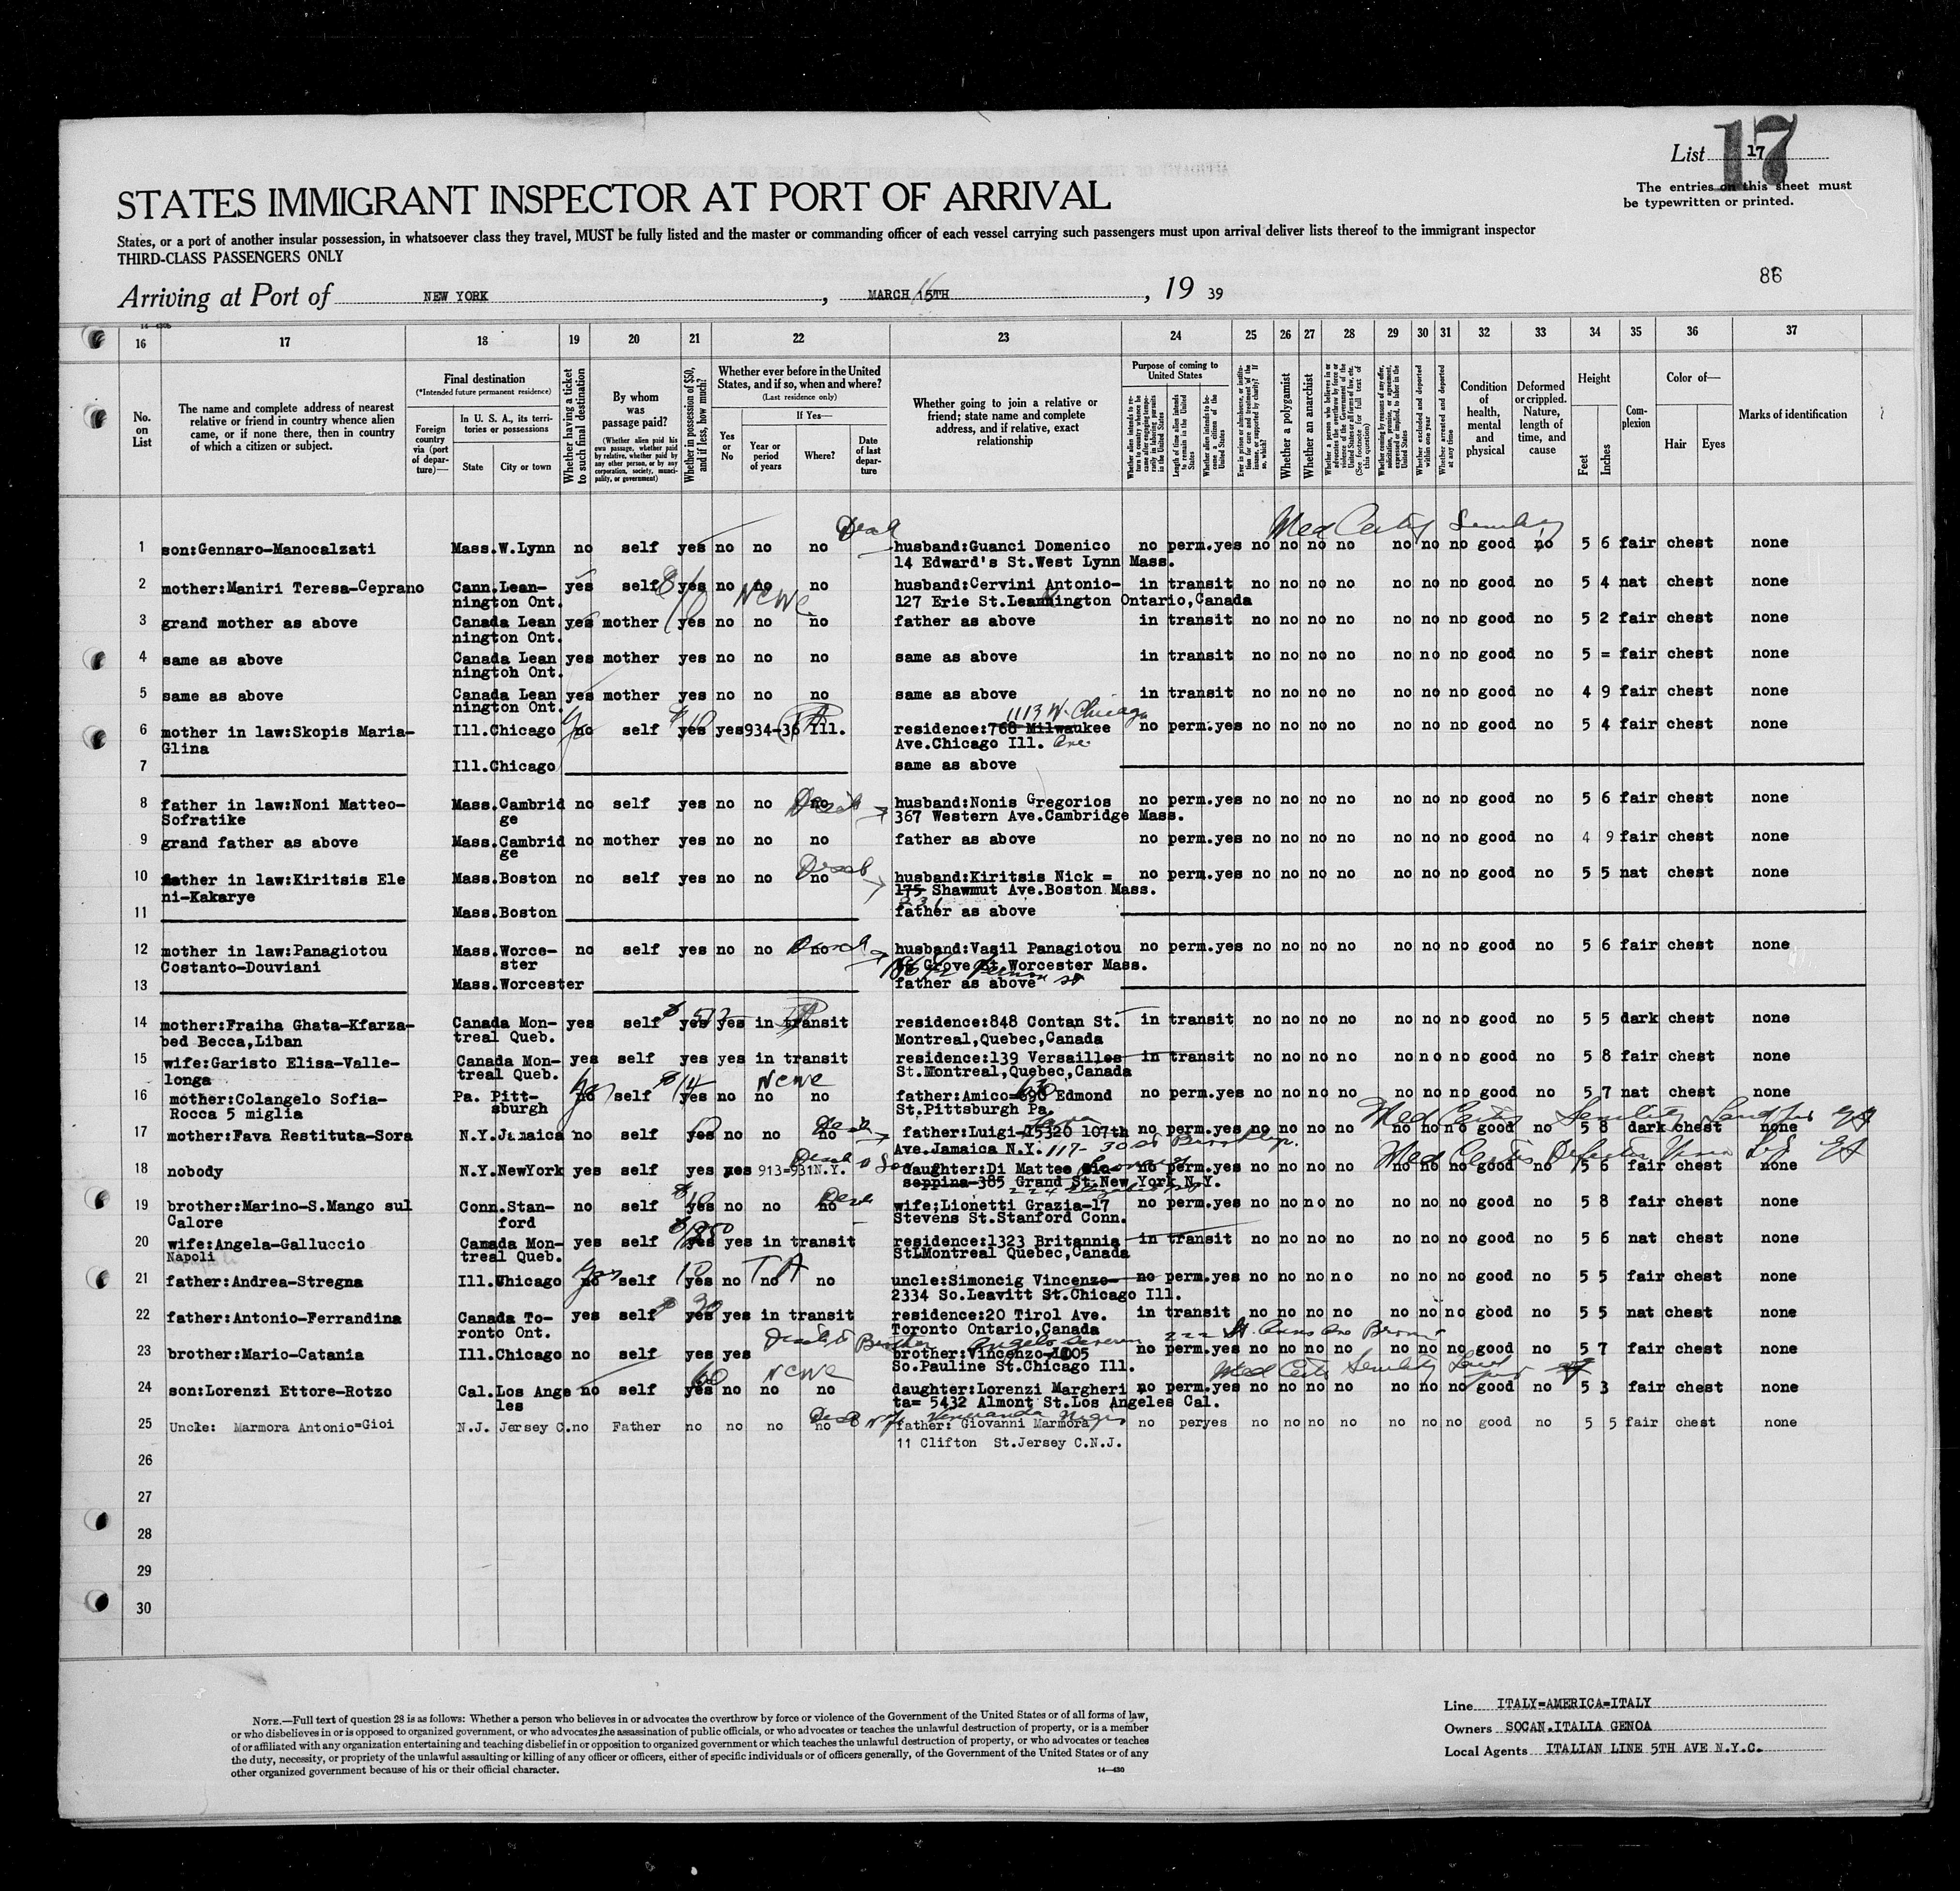 List 17
17
The entries on this sheet must
be typewritten or printed.
STATES IMMIGRANT INSPECTOR AT PORT OF ARRIVAL
States, or a port of another insular possession, in whatsoever class they travel, MUST be fully listed and the master or commanding officer of each vessel carrying such passengers must upon arrival deliver lists thereof to the immigrant inspector
THIRD-CLASS PASSENGERS ONLY
86
Arriving at Port of NEW YORK, MARCH 15TH, 19 39
16 17 18 19 20 21 22 23 24 25 26 27 28 29 30 31 32 33 34 35 36 37
No. on List
The name and complete address of nearest relative or friend in country whence alien came, or if none there, then in country of which a citizen or subject.
Final destination
(*Intended future permanent residence)
Foreign country via (port of departure)—
In U. S. A., its territories or possessions
State City or town
Whether having a ticket to such final destination
By whom was passage paid?
(Whether alien paid his own passage, whether paid by relative, whether paid by any other person, or by any corporation, society, municipality, or government)
Whether in possession of $50, and if less, how much?
Whether ever before in the United States, and if so, when and where?
(Last residence only)
Yes or No
If Yes—
Year or period of years
Where?
Date of last departure
Whether going to join a relative or friend; state name and complete address, and if relative, exact relationship
Purpose of coming to United States
Whether a polygamist
Whether an anarchist
Condition of health, mental and physical
Deformed or crippled. Nature, length of time, and cause
Height
Feet Inches
Complexion
Color of—
Hair Eyes
Marks of identification
1 son:Gennaro-Manocalzati Mass. W.Lynn no self yes no no no husband:Guanci Domenico no perm. yes no no no no no no no good no 5 6 fair chest none
14 Edward's St.West Lynn Mass.
2 mother:Maniri Teresa-Ceprano Cann.Lean- yes self yes no no no husband:Cervini Antonio- in transit no no no no no no no good no 5 4 nat chest none
nington Ont. NCWC 127 Erie St.Leamington Ontario,Canada
3 grand mother as above Canada Lean yes mother yes no no no father as above in transit no no no no no no no good no 5 2 fair chest none
nington Ont.
4 same as above Canada Lean yes mother yes no no no same as above in transit no no no no no no no good no 5 = fair chest none
nington Ont.
5 same as above Canada Lean yes mother yes no no no same as above in transit no no no no no no no good no 4 9 fair chest none
nington Ont.
1113 W. Chicago
6 mother in law:Skopis Maria- Ill.Chicago no self yes yes 934-36 Ill. residence:768 Milwaukee no perm.yes no no no no no no no good no 5 4 fair chest none
Glina Ave.Chicago Ill. Ave
7 Ill.Chicago same as above
8 father in law:Noni Matteo- Mass.Cambrid no self yes no no no husband:Nonis Gregorios no perm.yes no no no no no no no good no 5 6 fair chest none
Sofratike ge 367 Western Ave.Cambridge Mass.
9 grand father as above Mass.Cambrid no mother yes no no no father as above no perm.yes no no no no no no no good no 4 9 fair chest none
ge
10 father in law:Kiritsis Ele Mass.Boston no self yes no no no husband:Kiritsis Nick = no perm.yes no no no no no no no good no 5 5 nat chest none
ni-Kakarye 175 Shawmut Ave.Boston Mass.
11 Mass.Boston father as above
12 mother in law:Panagiotou Mass.Worce- no self yes no no husband:Vasil Panagiotou no perm.yes no no no no no no no good no 5 6 fair chest none
Costanto-Douviani ster Grove St.Worcester Mass.
13 Mass.Worcester father as above
14 mother:Fraiha Ghata-Kfarza- Canada Mon- yes self yes yes in transit residence:848 Contan St. in transit no no no no no no no good no 5 5 dark chest none
bed Becca,Liban treal Queb. Montreal,Quebec,Canada
15 wife:Garisto Elisa-Valle- Canada Mon- yes self yes yes in transit residence:139 Versailles in transit no no no no no no no good no 5 8 fair chest none
longa treal Queb. St.Montreal,Quebec,Canada
NCWC
16 mother:Colangelo Sofia- Pa. Pitt- no self yes no no no father:Amico= Edmond no perm.yes no no no no no no no good no 5 7 nat chest none
Rocca 5 miglia sburgh St.Pittsburgh Pa.
17 mother:Fava Restituta-Sora N.Y.Jamaica no self yes no no no father:Luigi-15320 107th no perm.yes no no no no no no no good no 5 8 dark chest none
Ave.Jamaica N.Y.
18 nobody N.Y.NewYork yes self yes yes 913=931N.Y. daughter:Di Matteo Gio- no perm.yes no no no no no no no good no 5 6 fair chest none
seppina-385 Grand St.New York N.Y.
19 brother:Marino-S.Mango sul Conn.Stan- no self yes no no no wife;Lionetti Grazia-17 no perm.yes no no no no no no no good no 5 8 fair chest none
Calore ford Stevens St.Stanford Conn.
20 wife:Angela-Galluccio Canada Mon- yes self yes yes in transit residence:1323 Britannia in transit no no no no no no no good no 5 6 nat chest none
Napoli treal Queb. StLMontreal Quebec,Canada
21 father:Andrea-Stregna Ill.Chicago no self yes no no no uncle:Simoncig Vincenzo- no perm.yes no no no no no no no good no 5 5 fair chest none
2334 So.Leavitt St.Chicago Ill.
22 father:Antonio-Ferrandina Canada To- yes self yes yes in transit residence:20 Tirol Ave. in transit no no no no no no no good no 5 5 nat chest none
ronto Ont. Toronto Ontario,Canada
23 brother:Mario-Catania Ill.Chicago no self yes yes brother:Vincenzo no perm.yes no no no no no no no good no 5 7 fair chest none
So.Pauline St.Chicago Ill.
NCWC
24 son:Lorenzi Ettore-Rotzo Cal.Los Ange no self yes no no no daughter:Lorenzi Margheri no perm.yes no no no no no no no good no 5 3 fair chest none
les ta= 5432 Almont St.Los Angeles Cal.
25 Uncle: Marmora Antonio=Gioi N.J. Jersey C.no Father no no no no father: Giovanni Marmora no peryes no no no no no no no good no 5 5 fair chest none
11 Clifton St.Jersey C.N.J.
26
27
28
29
30
NOTE.—Full text of question 28 is as follows: Whether a person who believes in or advocates the overthrow by force or violence of the Government of the United States or of all forms of law,
or who disbelieves in or is opposed to organized government, or who advocates the assassination of public officials, or who advocates or teaches the unlawful destruction of property, or is a member
of or affiliated with any organization entertaining and teaching disbelief in or opposition to organized government or which teaches the unlawful destruction of property, or who advocates or teaches
the duty, necessity, or propriety of the unlawful assaulting or killing of any officer or officers, either of specific individuals or of officers generally, of the Government of the United States or of any
other organized government because of his or their official character.
14—430
Line ITALY=AMERICA=ITALY
Owners SOCAN.ITALIA GENOA
Local Agents ITALIAN LINE 5TH AVE N.Y.C.